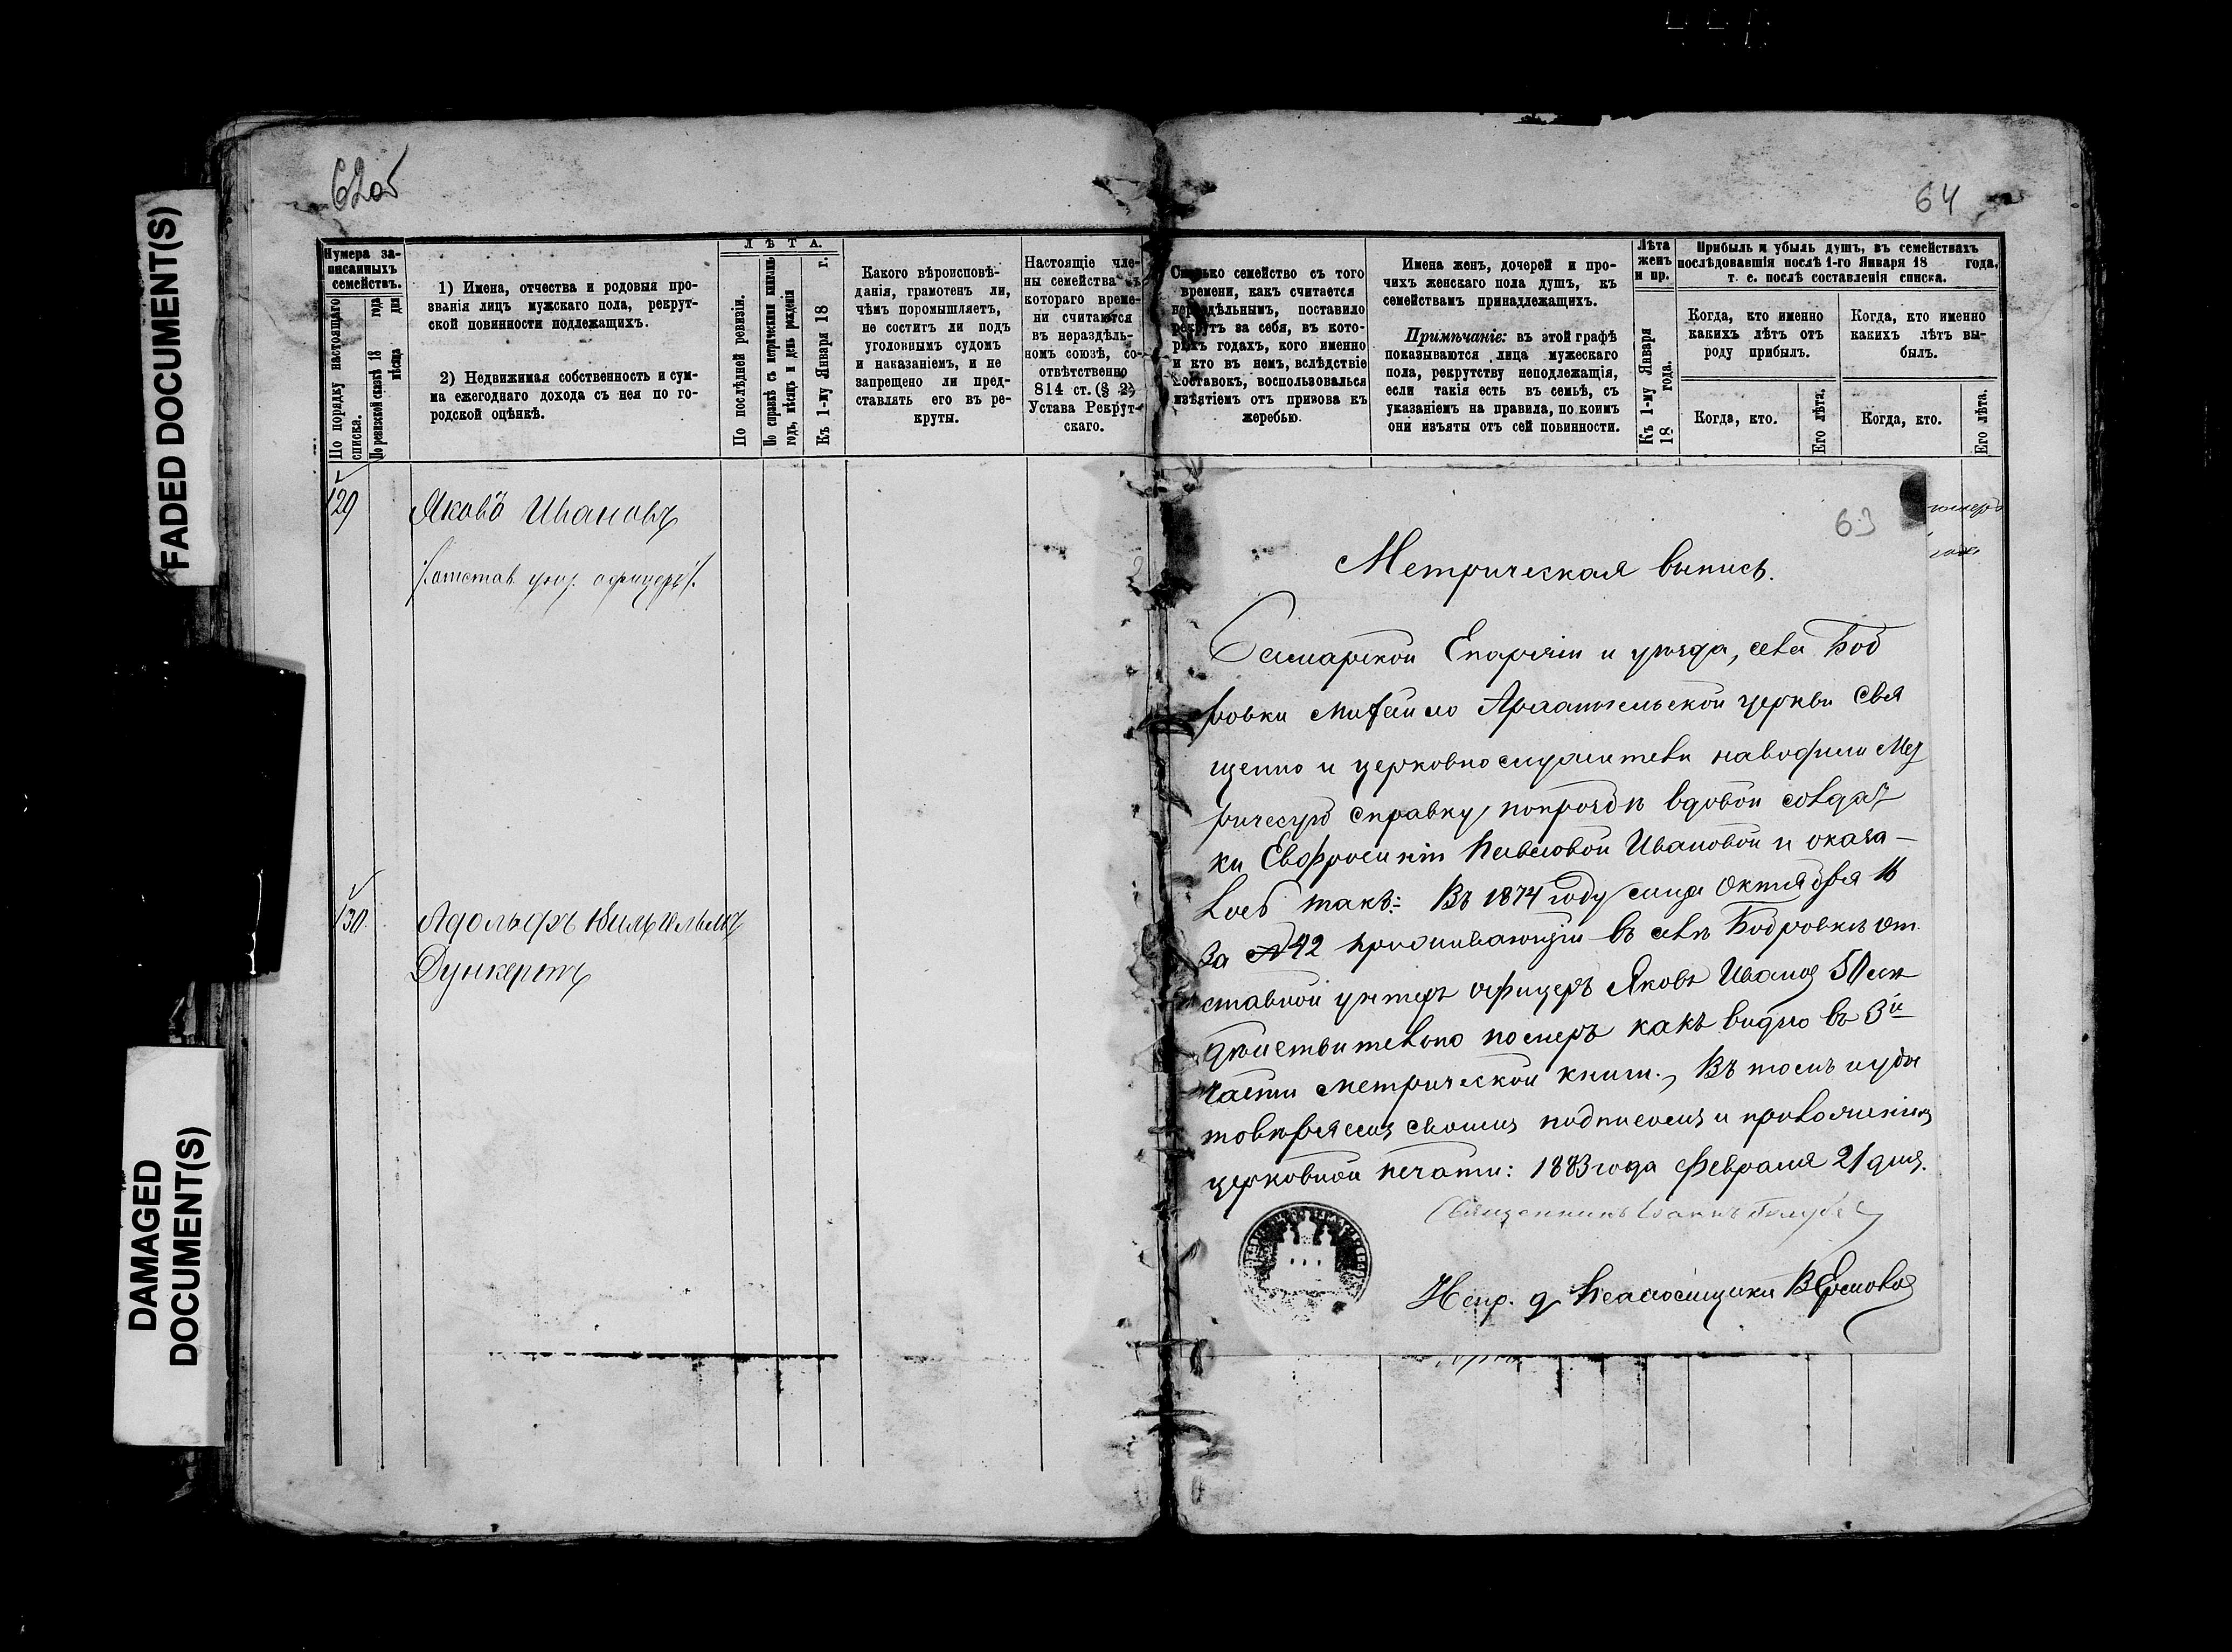 62об
64
Нумера за-
писанныхъ
семействъ.
По порядку настоящаго
списка.
По ревизской сказкѣ 18 года
мѣсяца дня
1) Имена, отчества и родовыя про-
званія лицъ мужскаго пола, рекрут-
ской повинности подлежащихъ.
2) Недвижимая собственность и сум-
ма ежегоднаго дохода съ нея по го-
родской оцѣнкѣ.
ЛѢТА.
По послѣдней ревизіи.
По справкѣ съ метрическими книгами
годъ, мѣсяцъ и день рожденія
Къ 1-му Января 18 г.
Какого вѣроисповѣ-
данія, грамотенъ ли,
чѣмъ поромышляетъ,
не соститъ ли подъ
уголовнымъ судомъ
и наказаніемъ, и не
запрещено ли пред-
ставлять его въ ре-
круты.
Настоящіе чле-
ны семейства съ
котораго време-
ни считаются
въ нераздѣль-
номъ союзѣ, со-
отвѣтственно
814 ст. (§ 2)
Устава Рекрут-
скаго.
Сколько семейство съ того
времени, какъ считается
нераздѣльнымъ, поставило
рекрутъ за себя, въ кото-
рыхъ годахъ, кого именно
и кто въ немъ, вслѣдствіе
поставокъ, воспользовался
изъятіемъ отъ призова къ
жеребью.
Имена женъ, дочерей и про-
чихъ женскаго пола душъ, къ
семействамъ принадлежащихъ.
Примѣчаніе: въ этой графѣ
показываются лица мужескаго
пола, рекрутству неподлежащія,
если такія есть въ семьѣ, съ
указаніемъ на правила, по коимъ
они изъяты отъ сей повинности.
Лѣта
женъ
и пр.
Къ 1-му Января
18 года.
Прибыль и убыль душъ, въ семействахъ
послѣдовавшія послѣ 1-го Января 18 года,
т. е. послѣ составленія списка.
Когда, кто именно
какихъ лѣтъ отъ
роду прибылъ.
Когда, кто.
Его лѣта.
Когда, кто именно
какихъ лѣтъ вы-
былъ.
Когда, кто.
Его лѣта.
129
Яковъ Ивановъ
/:отстав. унт. офицеръ:/.
130.
Адольфъ Вильгельмъ
Дункертъ
63
Метрическая выпись.
Самарской Епархіи и уѣзда, села Боб
ровки Михаило Архангельской церкви Свя
щенно и церковнослужители наводили Мет
ричесую справку, по прозьбѣ вдовой солдат
ки Евфросиніи Павловой Ивановой и оказа-
лось такъ: Въ 1874 году сица Октября 16
За № 42 проживающій въ селѣ Бобровкѣ от
ставной унтеръ офицеръ Яковъ Иванов 50 лѣт
дѣйствительно померъ какъ видно въ 3й
части метрической книги., Въ томъ и удос
товѣряемъ своимъ подписомъ и приложеніемъ
церковной печати: 1883 года Февраля 21 дня.
Священникъ Іоаннъ
Испр. д. Псаломщика В Ермолов